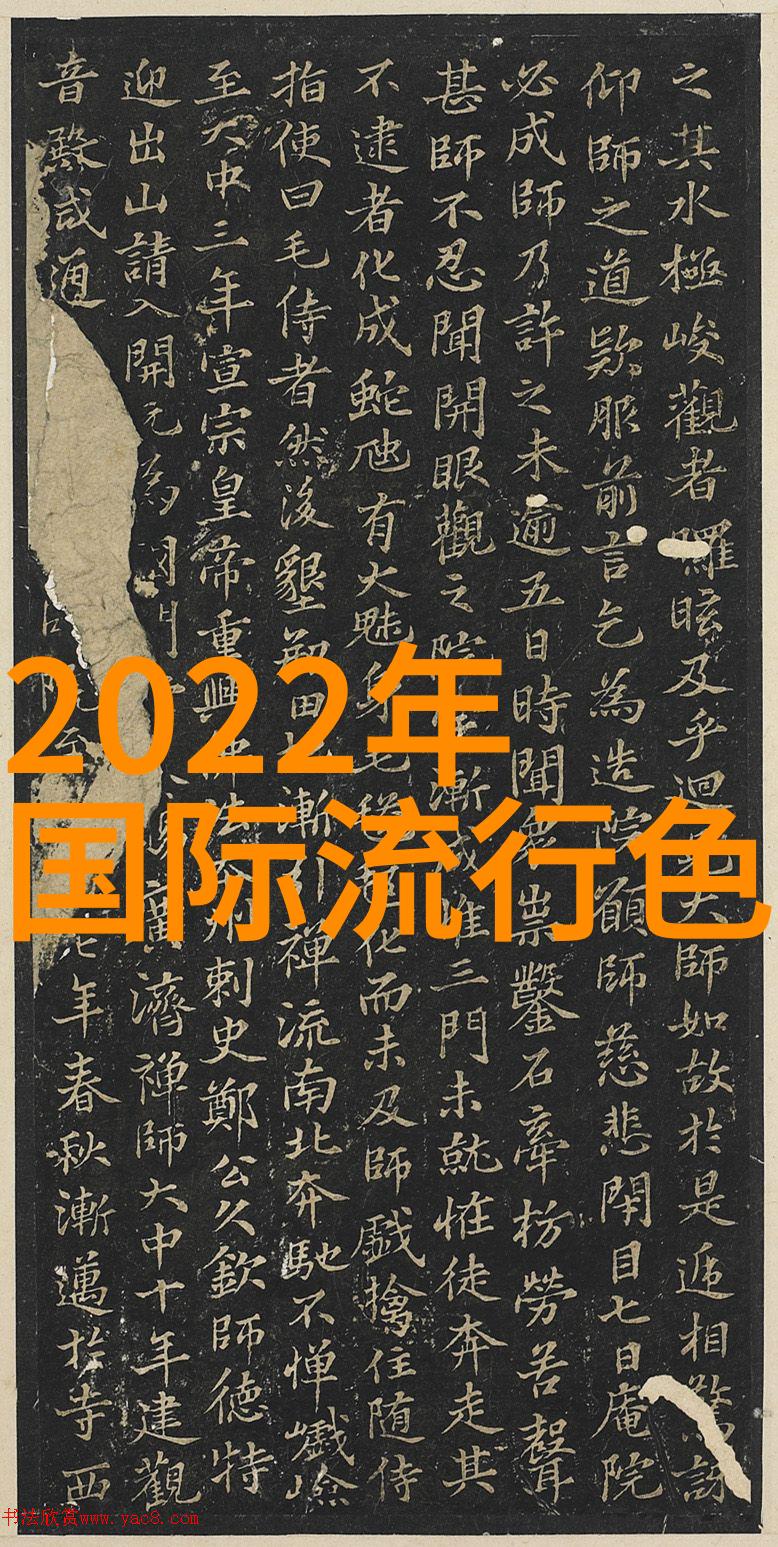 2022年
国际流行色
之其水極峻觀者眩及乎迴大師如故於是遞相驚訝
仰師之道欵服前言乞為造院願師慈悲閉目七日庵院
必成師乃許之未逾五日時聞眾祟鑿石牽枋勞苦聲
甚師不忍聞開眼觀之院漸成惟三門未就恠徒奔走其
不逮者化成蛇虺有大魅身毛化而未及師戲擒住随侍
指使曰毛侍者然後墾田漸引禪流南北奔馳不憚巇嶮
至大中三年宣宗皇帝重興佛法州刺史鄭公久欽師德特
迎出山請入開元為廣濟禪師大中十年建觀
音殿咸通七年春秋漸邁於寺西
书法欣赏www.yac8.com